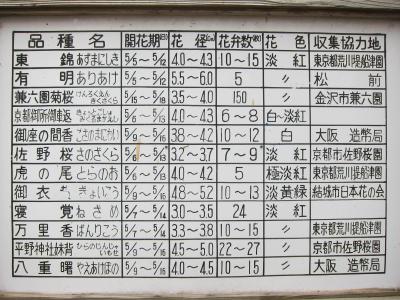 品種名 開花期(日) 花径(cm) 花弁数(枚) 花色 収集協力地
東錦 あずまにしき 5/6~5/12 4.0~4.3 10~15 淡紅 東京都荒川堤船津園
有明 ありあけ 5/5~5/12 5.5~6.0 5 〃 松前
兼六園菊桜 けんろくえんきくざくら 5/15~5/18 3.5~4.0 150 〃 金沢市兼六園
京都御所御車返 4.0~4.3 6~8 白~淡紅
御座の間香 ござのまにおい 3.8~4.2 10~12 白 大阪 造幣局
佐野桜 さのざくら 5/6~5/13 3.2~3.7 7~9 淡紅 京都市佐野桜園
虎の尾 とらのお 5/6~5/12 4.0~4.2 5 極淡紅 〃
御衣 きょいこう 5/9~5/16 4.8~5.2 10~13 淡黄緑 結城市日本花の会
寝覚 ねざめ 5/7~5/14 3.0~3.5 24 淡紅
万里香 ばんりこう 5/7~5/14 3.3~3.8 10~15 〃 東京都荒川堤船津園
平野神社妹背 ひらのじんじゃいもせ 5/9~5/15 4.5~5.0 22~27 〃 京都市佐野桜園
八重曙 やえあけぼの 5/9~5/16 4.0~4.5 10~15 〃 大阪 造幣局